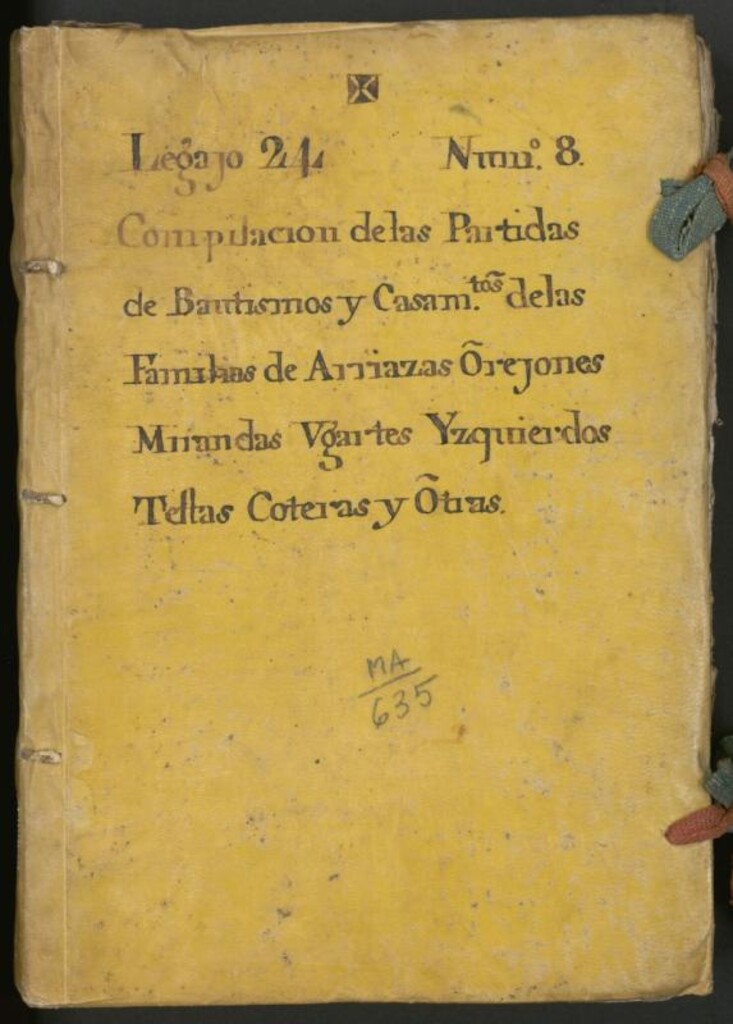 Legajo 24 Num.º 8.
Compilacion delas Partidas
de Bautismos y Casam.tos delas
Familias de Arriazas Õrejones
Mirandas Vgartes Yzquierdos
Tellas Coteras y Õtras.
MA
635